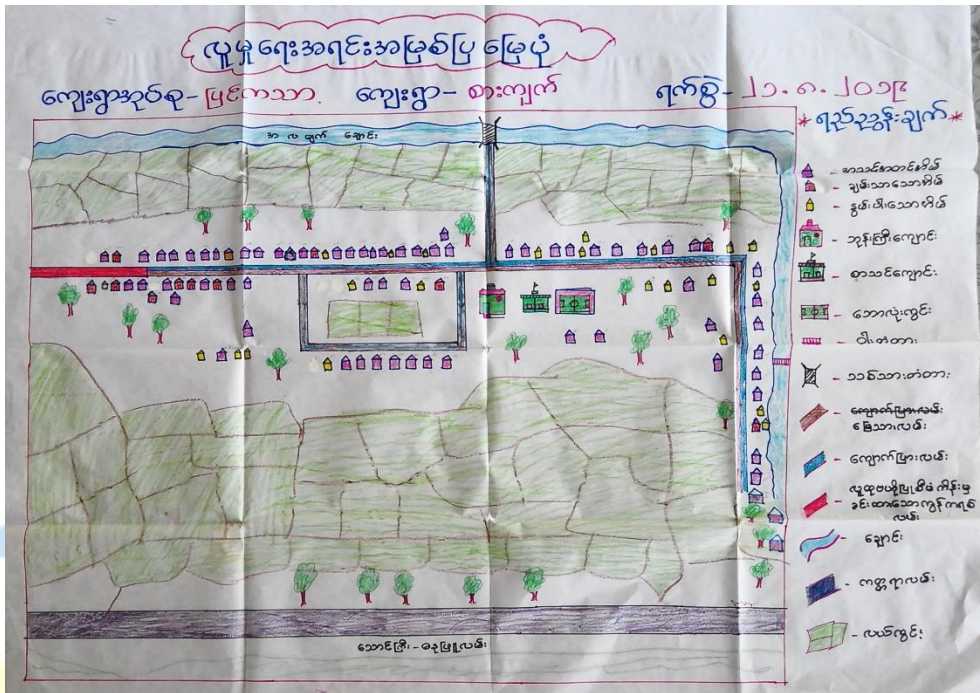 လူမှုရေးအရင်းအမြစ်ပြ မြေပုံ
ကျေးရွာအုပ်စု - ပြင်ကသာ ကျေးရွာ - စားကျက် ရက်စွဲ - ၂၁.၈.၂၀၁၉
* ရည်ညွှန်းချက် *
ချောင်း
- အသင့်အတင့်အိမ်
- ချမ်းသာသောအိမ်
- နွမ်းပါးသောအိမ်
- ဘုန်းကြီးကျောင်း
- စာသင်ကျောင်း
- ဘောလုံးကွင်း
- ဝါးတံတား
- သစ်သားတံတား
- ကျောက်ပြားလမ်း
မြေသားလမ်း
- ကျောက်ပြားလမ်း
လူထုဗဟိုပြုစီမံကိန်းမှ
ခင်းထားသောကွန်ကရစ်
လမ်း
- ချောင်း
- ကတ္တရာလမ်း
- လယ်ကွင်း
လမ်း